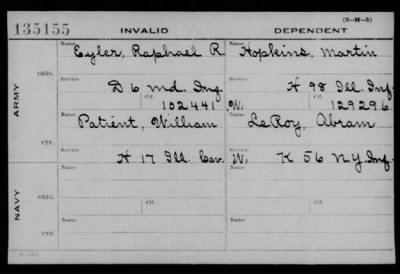 (3-H-5)
135155 INVALID DEPENDENT
ARMY ORIG. Name Eyler, Raphael R. Name Hopkins, Martin
Service D 6 Md. Inf. Service H 98 Ill. Inf.
Ctf. 132441 W. Ctf. 129296
CTF. Name Patient, William Name LeRoy, Abram
Service H 17 Ill. Cav. W. Service K 56 N.Y. Inf.
NAVY ORIG. Name Name
Ctf. Ctf.
CTF. Name Name